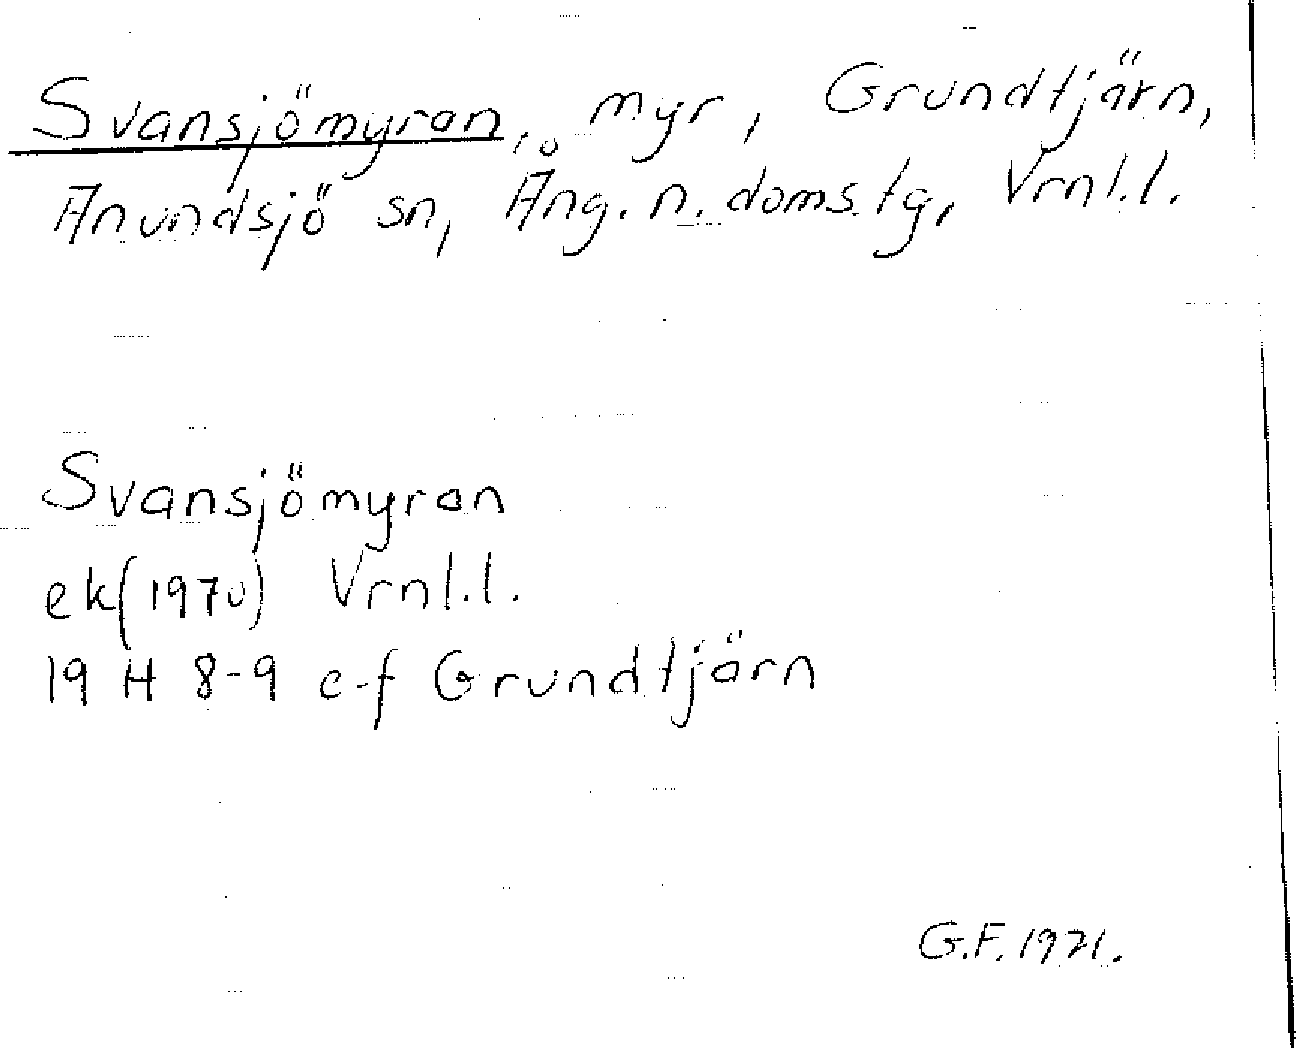 Svansjömyran, myr, Grundtjärn,
Anundsjö sn, Ång. n. doms.tg, Vrnl.l.
Svansjömyran
ek(1970) Vrnl.l.
19 H 8-9 e-f Grundtjärn
G.F. 1971.